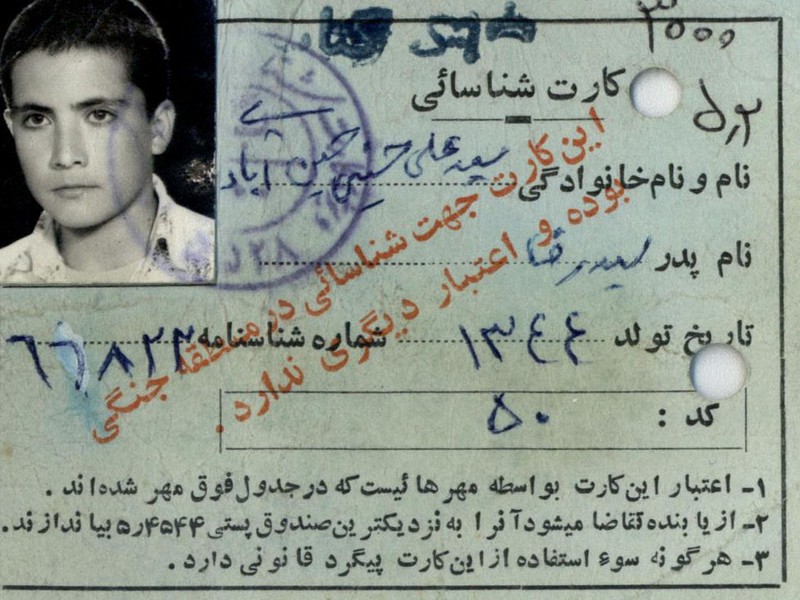 ۳۰۰۰
کارت شناسائی
۵٫۲
نام و نام‌خانوادگی سید علی حسینی حسین آباد
نام پدر سیدرضا
تاریخ تولد ۱۳۴۴ شماره شناسنامه ۶۶۸۲۳
کد : ۵۰
این کارت جهت شناسائی در منطقه جنگی
بوده و اعتبار دیگری ندارد .
۱- اعتبار این‌کارت بواسطه مهر هائیست‌که درجدول‌فوق مهر شده‌اند .
۲- از یابنده تقاضا میشود آنرا به نزدیکترین‌صندوق‌پستی ۵٫۴۵۴۴ بیاندازند.
۳- هرگونه سوء استفاده از این‌کارت پیگرد قانونی دارد .